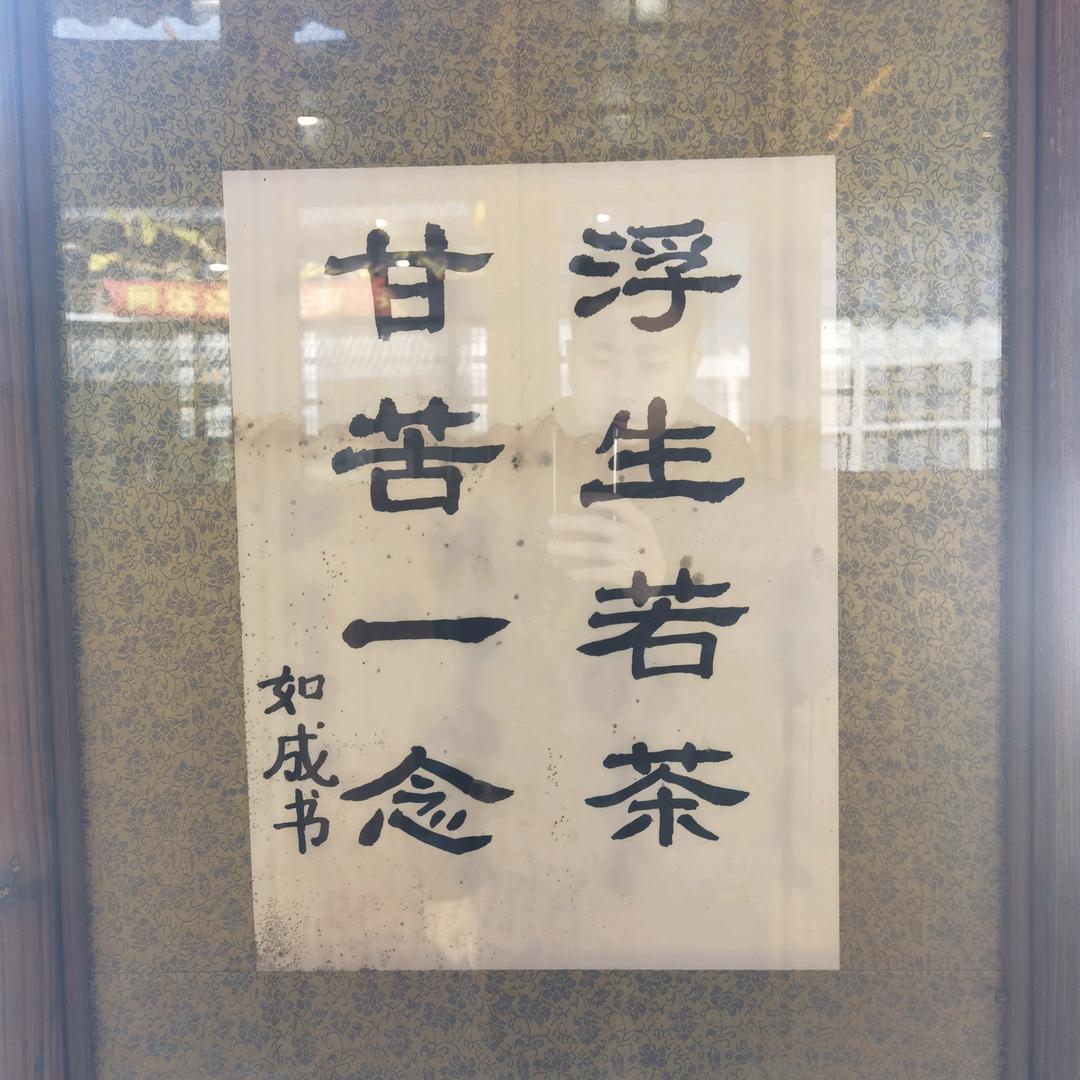 浮生若茶
甘苦一念
如成书